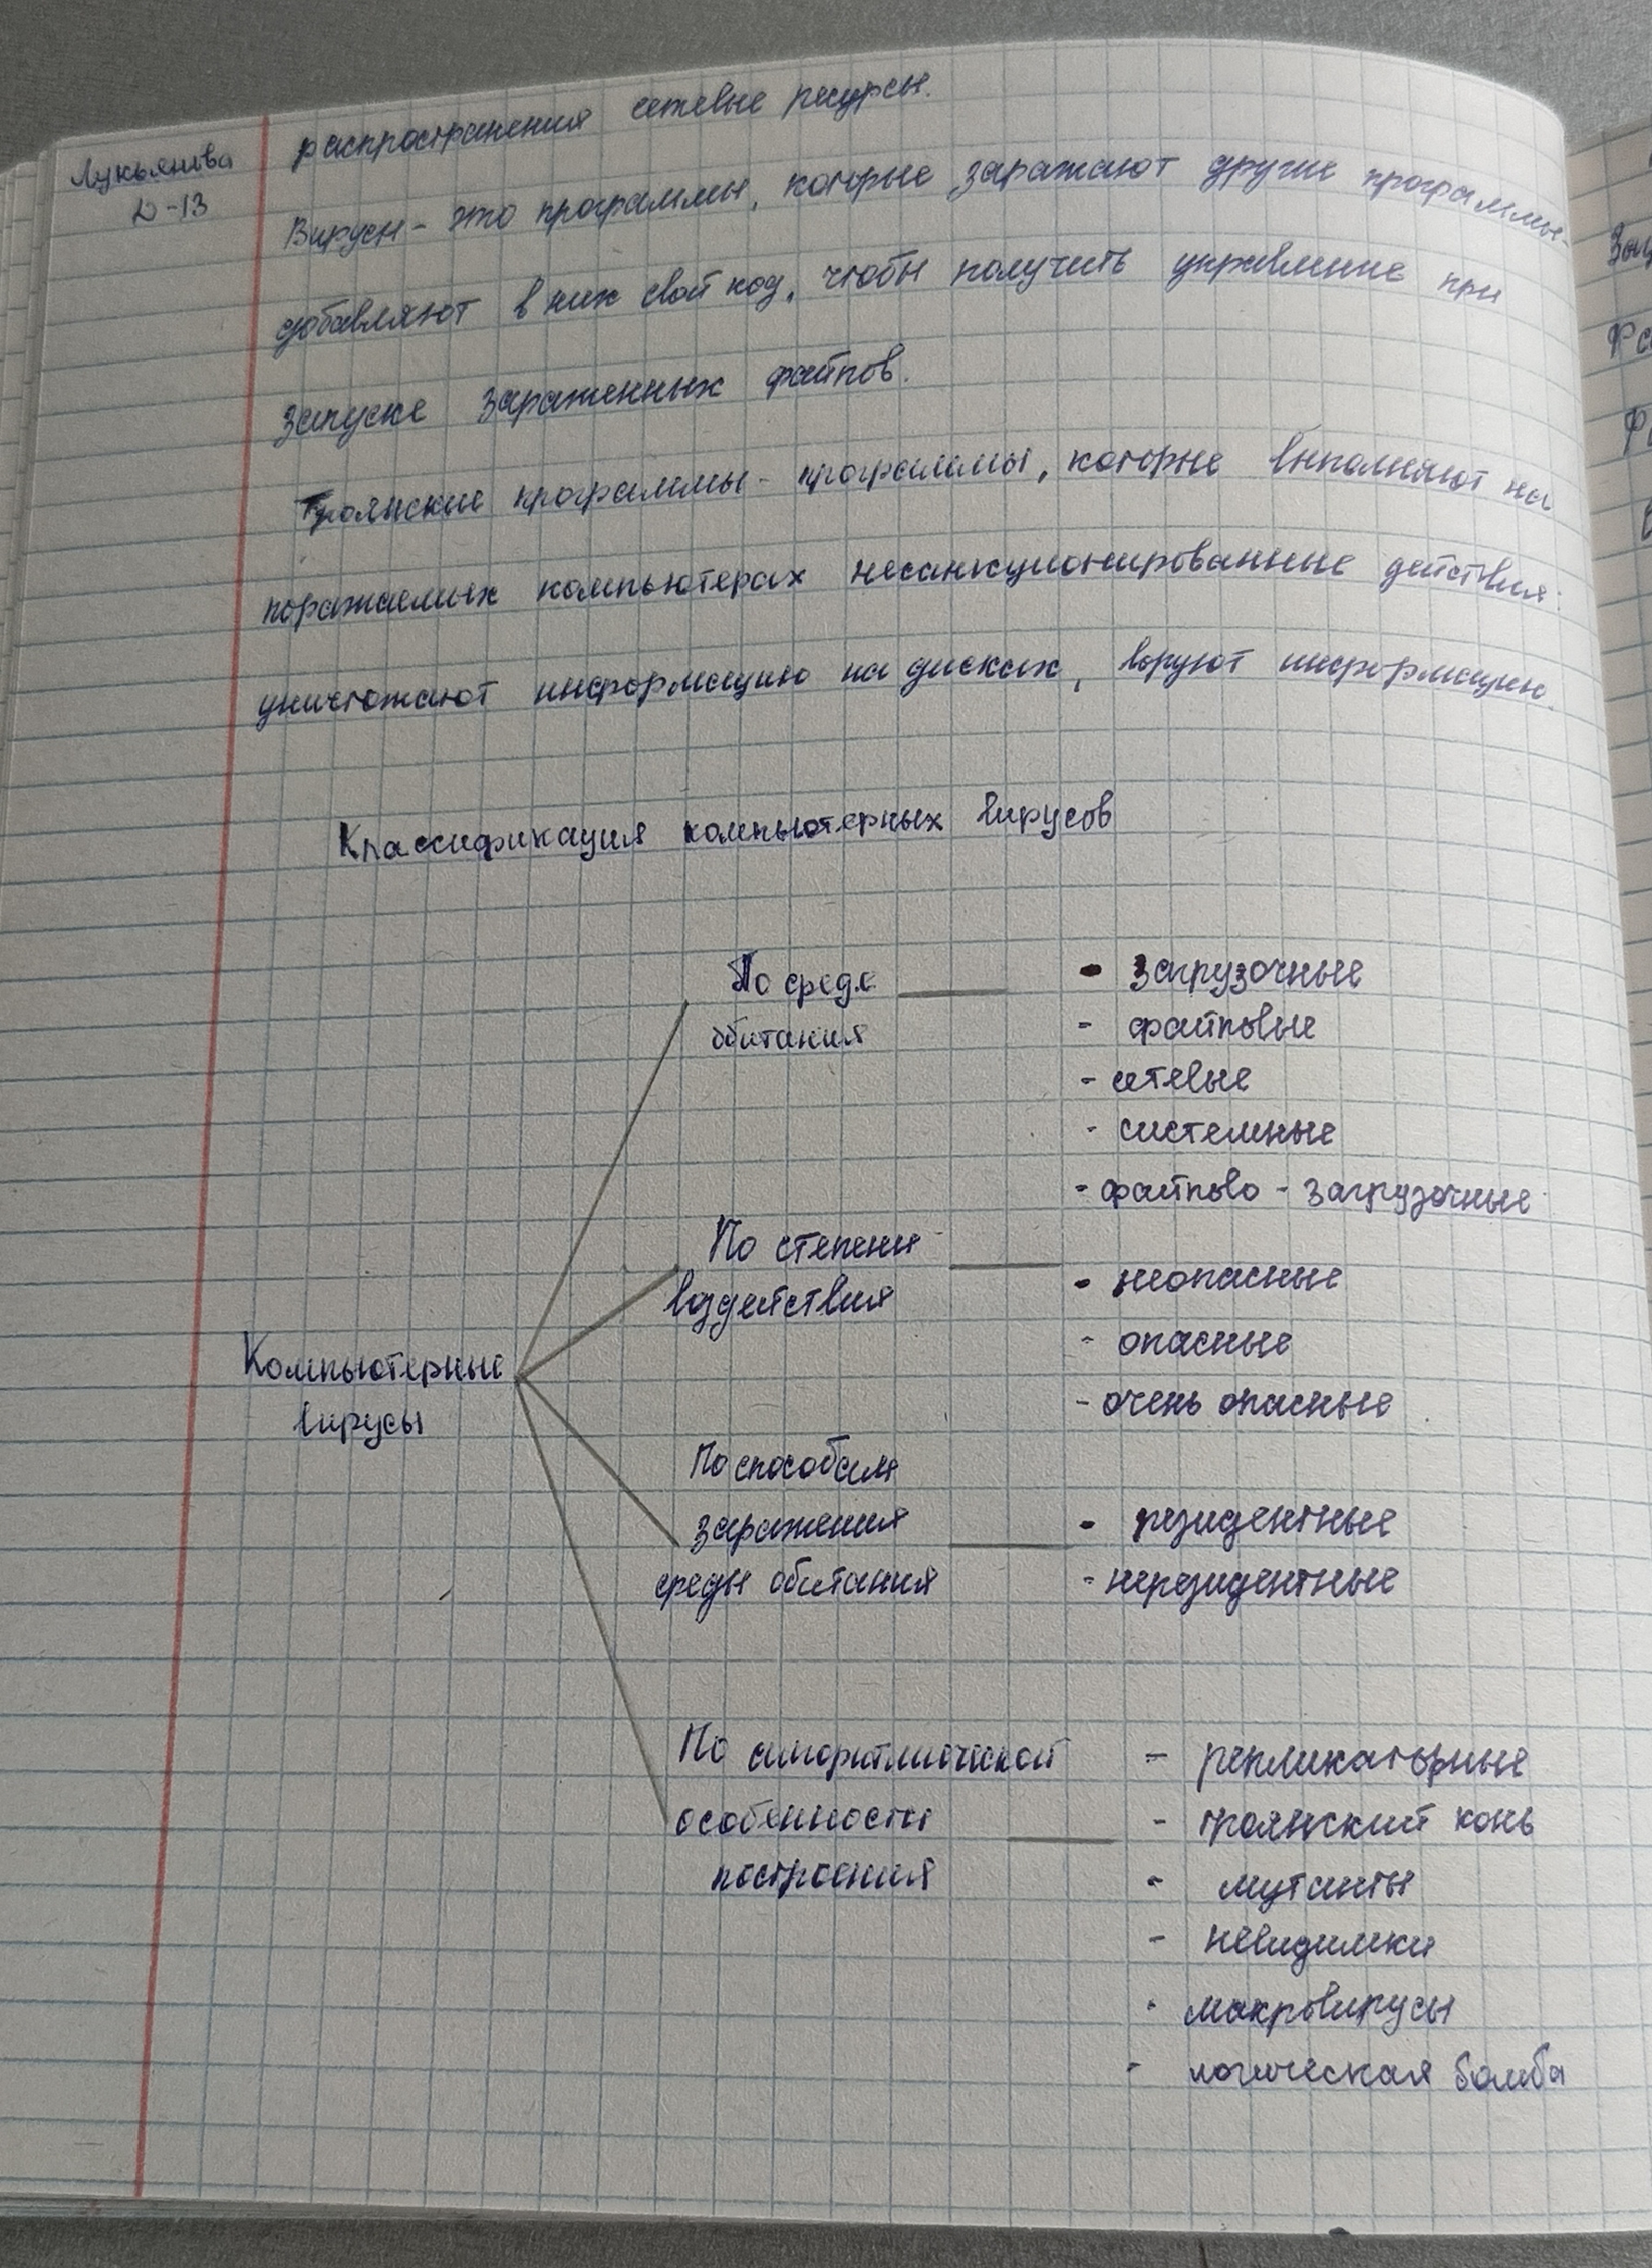 Лукьянова
Д-13
распространения сетевые ресурсы.
Вирусы - это программы, которые заражают другие программы-
добавляют в них свой код, чтобы получить управление при
запуске зараженных файлов.
Троянские программы - программы, которые выполняют на
поражаемых компьютерах несанкционированные действия:
уничтожают информацию на дисках, воруют информацию.
Классификация компьютерных вирусов
По среде
обитания
- загрузочные
- файловые
- сетевые
- системные
- файлово - загрузочные
По степени
воздействия
- неопасные
- опасные
- очень опасные
Компьютерные
вирусы
По способам
заражения
среды обитания
- резидентные
- нерезидентные
По алгоритмической
особенности
построения
- репликаторные
- троянский конь
- мутанты
- невидимки
- макровирусы
- логическая бомба